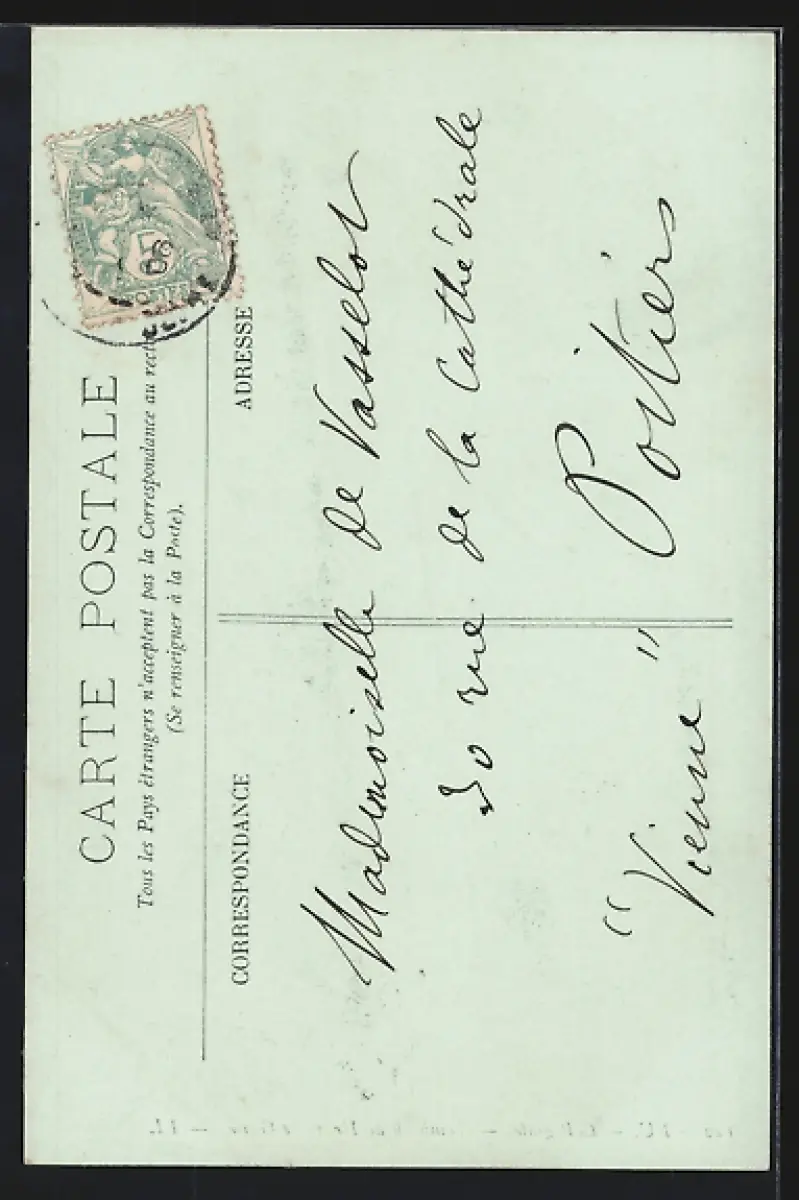 CARTE POSTALE
Tous les Pays étrangers n'acceptent pas la Correspondance au recto
(Se renseigner à la Poste).
CORRESPONDANCE
ADRESSE
Mademoiselle de Vasselot
30 rue de la Cathédrale
Poitiers
"Vienne"
5
06